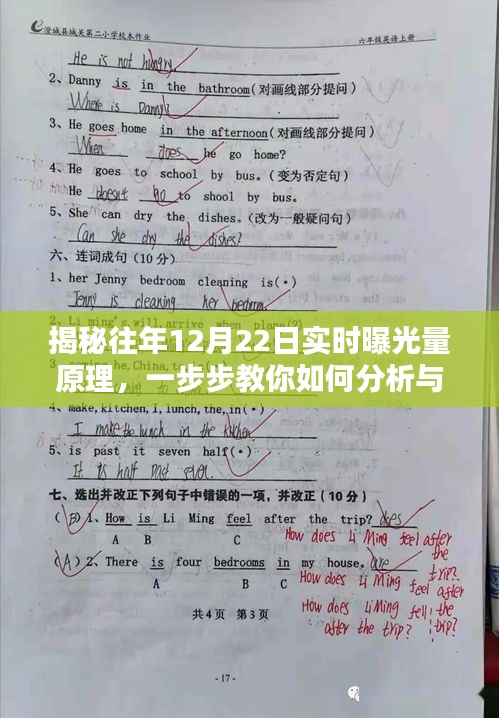 澄城县城关第二小学校本作业 六年级英语上册
He is not hungry
2、Danny is in the bathroom(对画线部分提问)
Where is Danny?
3、He goes home in the afternoon(对画线部分提问)
When does he go home?
4、He goes to school by bus.(变为否定句)
He doesn't go to shool by bus.
5、She can dry the dishes.(改为一般疑问句)
Can she dry the dishes?
六、连词成句(10分)
1、her Jenny bedroom cleaning is(•)
Jenny is cleaning her bedroom.
揭秘往年12月22日实时曝光量
原理，一步步教你如何分析与
4、make,kitchen,I,lunch,the,in(•)
I make the lunch in the kitchen
5、is past it seven half(•)
It is half past seven.
七、选出并改正下列句子中错误的一项，并改正(10分)
(B)1、How is Li Ming feel after the trip? does
A B C
How does Li Ming feel after the trip?
(A)2、There is four bedrooms in my house. are
A B C
How does Li Ming feel after the trip?
How does Li Ming fell after the trip?
共4页 第3页
-17-